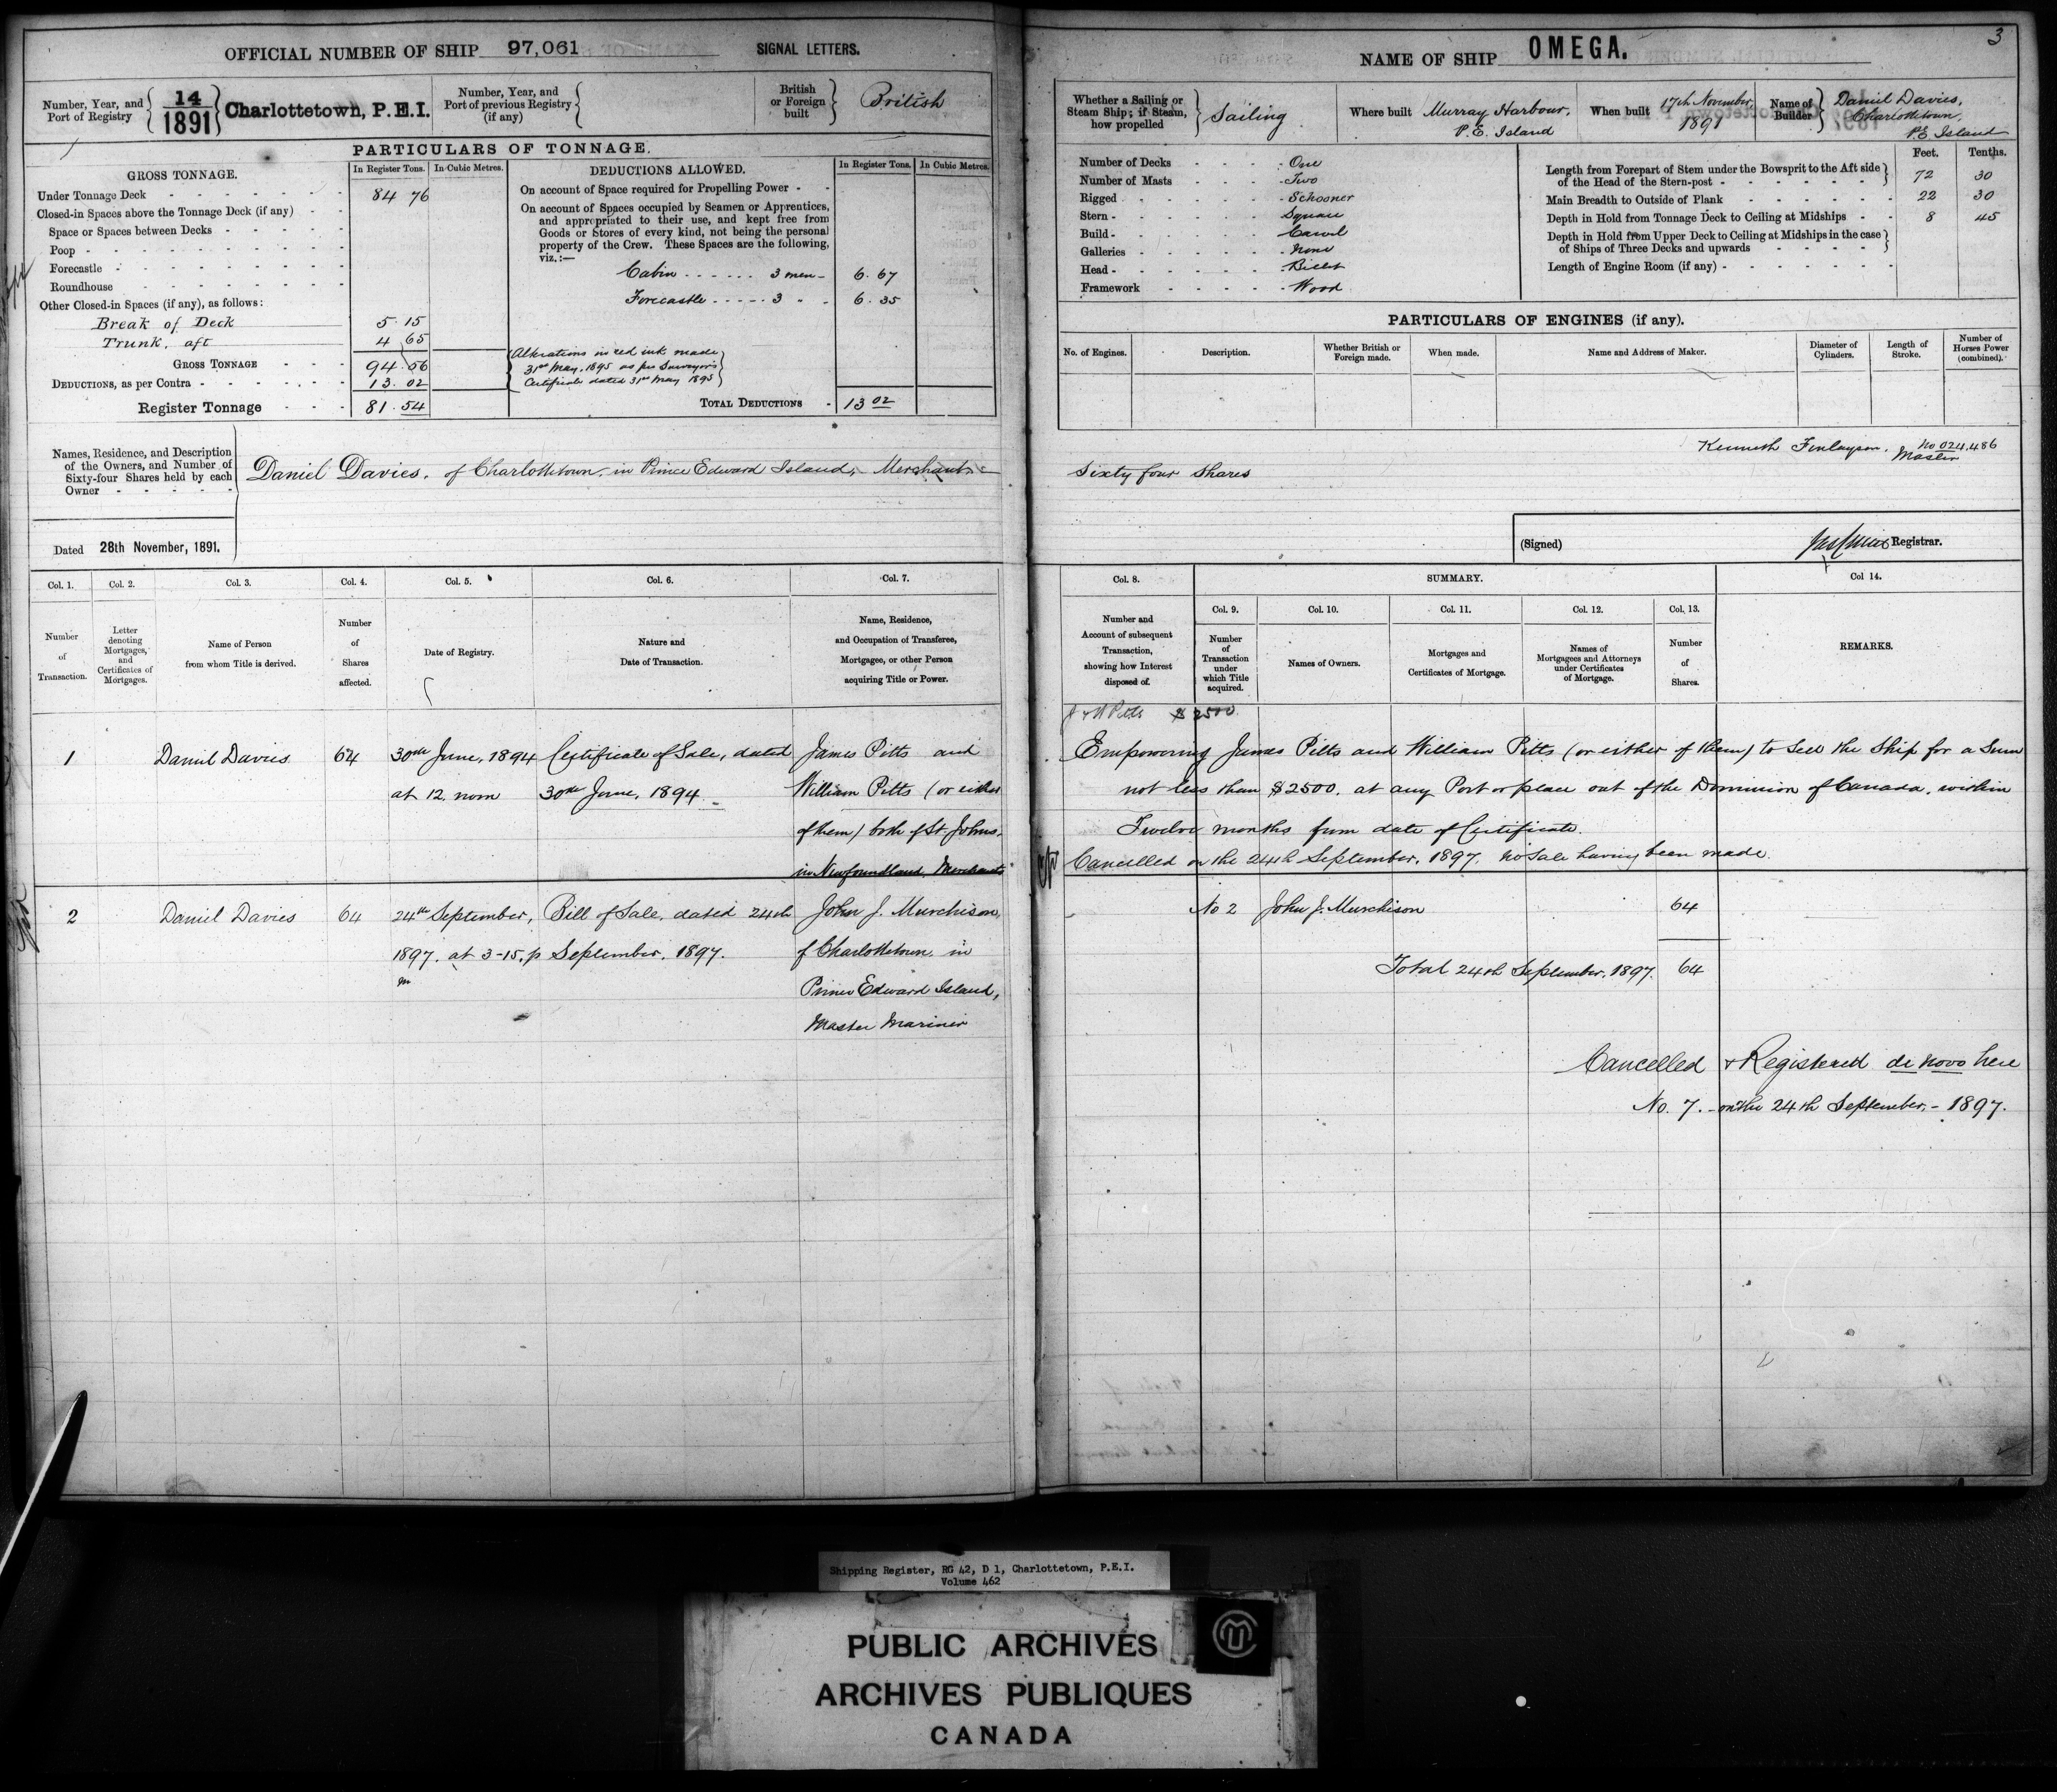 OFFICIAL NUMBER OF SHIP 97,061 SIGNAL LETTERS.
Number, Year, and Port of Registry
14
1891
Charlottetown, P.E.I.
Number, Year, and Port of previous Registry (if any)
British or Foreign built
British
PARTICULARS OF TONNAGE.
GROSS TONNAGE. In Register Tons. In Cubic Metres.
Under Tonnage Deck 84 76
Closed-in Spaces above the Tonnage Deck (if any)
Space or Spaces between Decks
Poop
Forecastle
Roundhouse
Other Closed-in Spaces (if any), as follows:
Break of Deck 5.15
Trunk, aft 4 65
GROSS TONNAGE 94.56
DEDUCTIONS, as per Contra 13.02
Register Tonnage 81.54
DEDUCTIONS ALLOWED. In Register Tons. In Cubic Metres.
On account of Space required for Propelling Power
On account of Spaces occupied by Seamen or Apprentices,
and appropriated to their use, and kept free from
Goods or Stores of every kind, not being the personal
property of the Crew. These Spaces are the following,
viz.:—
Cabin 3 men 6.67
Forecastle 3 " 6.35
Alterations in red ink made
31st May, 1895 as per Surveyor's
Certificate dated 31st May 1895
TOTAL DEDUCTIONS 13 02
Names, Residence, and Description
of the Owners, and Number of
Sixty-four Shares held by each
Owner
Daniel Davies, of Charlottetown, in Prince Edward Island, Merchant
Dated 28th November, 1891.
Col. 1. Col. 2. Col. 3. Col. 4. Col. 5. Col. 6. Col. 7.
Number of Transaction.
Letter denoting Mortgages, and Certificates of Mortgages.
Name of Person from whom Title is derived.
Number of Shares affected.
Date of Registry.
Nature and Date of Transaction.
Name, Residence, and Occupation of Transferee, Mortgagee, or other Person acquiring Title or Power.
1 Daniel Davies 64 30th June, 1894 Certificate of Sale, dated James Pitts and
at 12. noon 30th June, 1894. William Pitts (or either
of them) both of St. Johns,
in Newfoundland, Merchants
2 Daniel Davies 64 24th September, Bill of Sale, dated 24th John J. Murchison,
1897. at 3-15. p September, 1897. of Charlottetown, in
m Prince Edward Island,
Master Mariner
3
NAME OF SHIP OMEGA.
Whether a Sailing or Steam Ship; if Steam, how propelled
Sailing
Where built Murray Harbour,
P.E. Island
When built 17th November,
1891
Name of Builder
Daniel Davies,
Charlottetown,
P.E. Island
Number of Decks One
Number of Masts Two
Rigged Schooner
Stern Square
Build Carvel
Galleries None
Head Billet
Framework Wood
Feet. Tenths.
Length from Forepart of Stem under the Bowsprit to the Aft side
of the Head of the Stern-post 72 30
Main Breadth to Outside of Plank 22 30
Depth in Hold from Tonnage Deck to Ceiling at Midships 8 45
Depth in Hold from Upper Deck to Ceiling at Midships in the case
of Ships of Three Decks and upwards
Length of Engine Room (if any)
PARTICULARS OF ENGINES (if any).
No. of Engines. Description. Whether British or Foreign made. When made. Name and Address of Maker. Diameter of Cylinders. Length of Stroke. Number of Horses Power (combined).
Kenneth Finlayson. No 024,486
Master
Sixty four Shares
(Signed) Registrar.
Col. 8. SUMMARY. Col 14.
Col. 9. Col. 10. Col. 11. Col. 12. Col. 13.
Number and Account of subsequent Transaction, showing how Interest disposed of.
Number of Transaction under which Title acquired.
Names of Owners.
Mortgages and Certificates of Mortgage.
Names of Mortgagees and Attorneys under Certificates of Mortgage.
Number of Shares.
REMARKS.
J & W Pitts $2500.
Empowering James Pitts and William Pitts (or either of them) to Sell the Ship for a Sum
not less than $2500. at any Port or place out of the Dominion of Canada, within
Twelve months from date of Certificate.
Cancelled on the 24th September, 1897. no Sale having been made.
No 2 John J. Murchison 64
Total 24th September, 1897. 64
Cancelled & Registered de novo here
No. 7. on the 24th September, - 1897.
Shipping Register, RG 42, D 1, Charlottetown, P.E.I.
Volume 462
PUBLIC ARCHIVES
ARCHIVES PUBLIQUES
CANADA